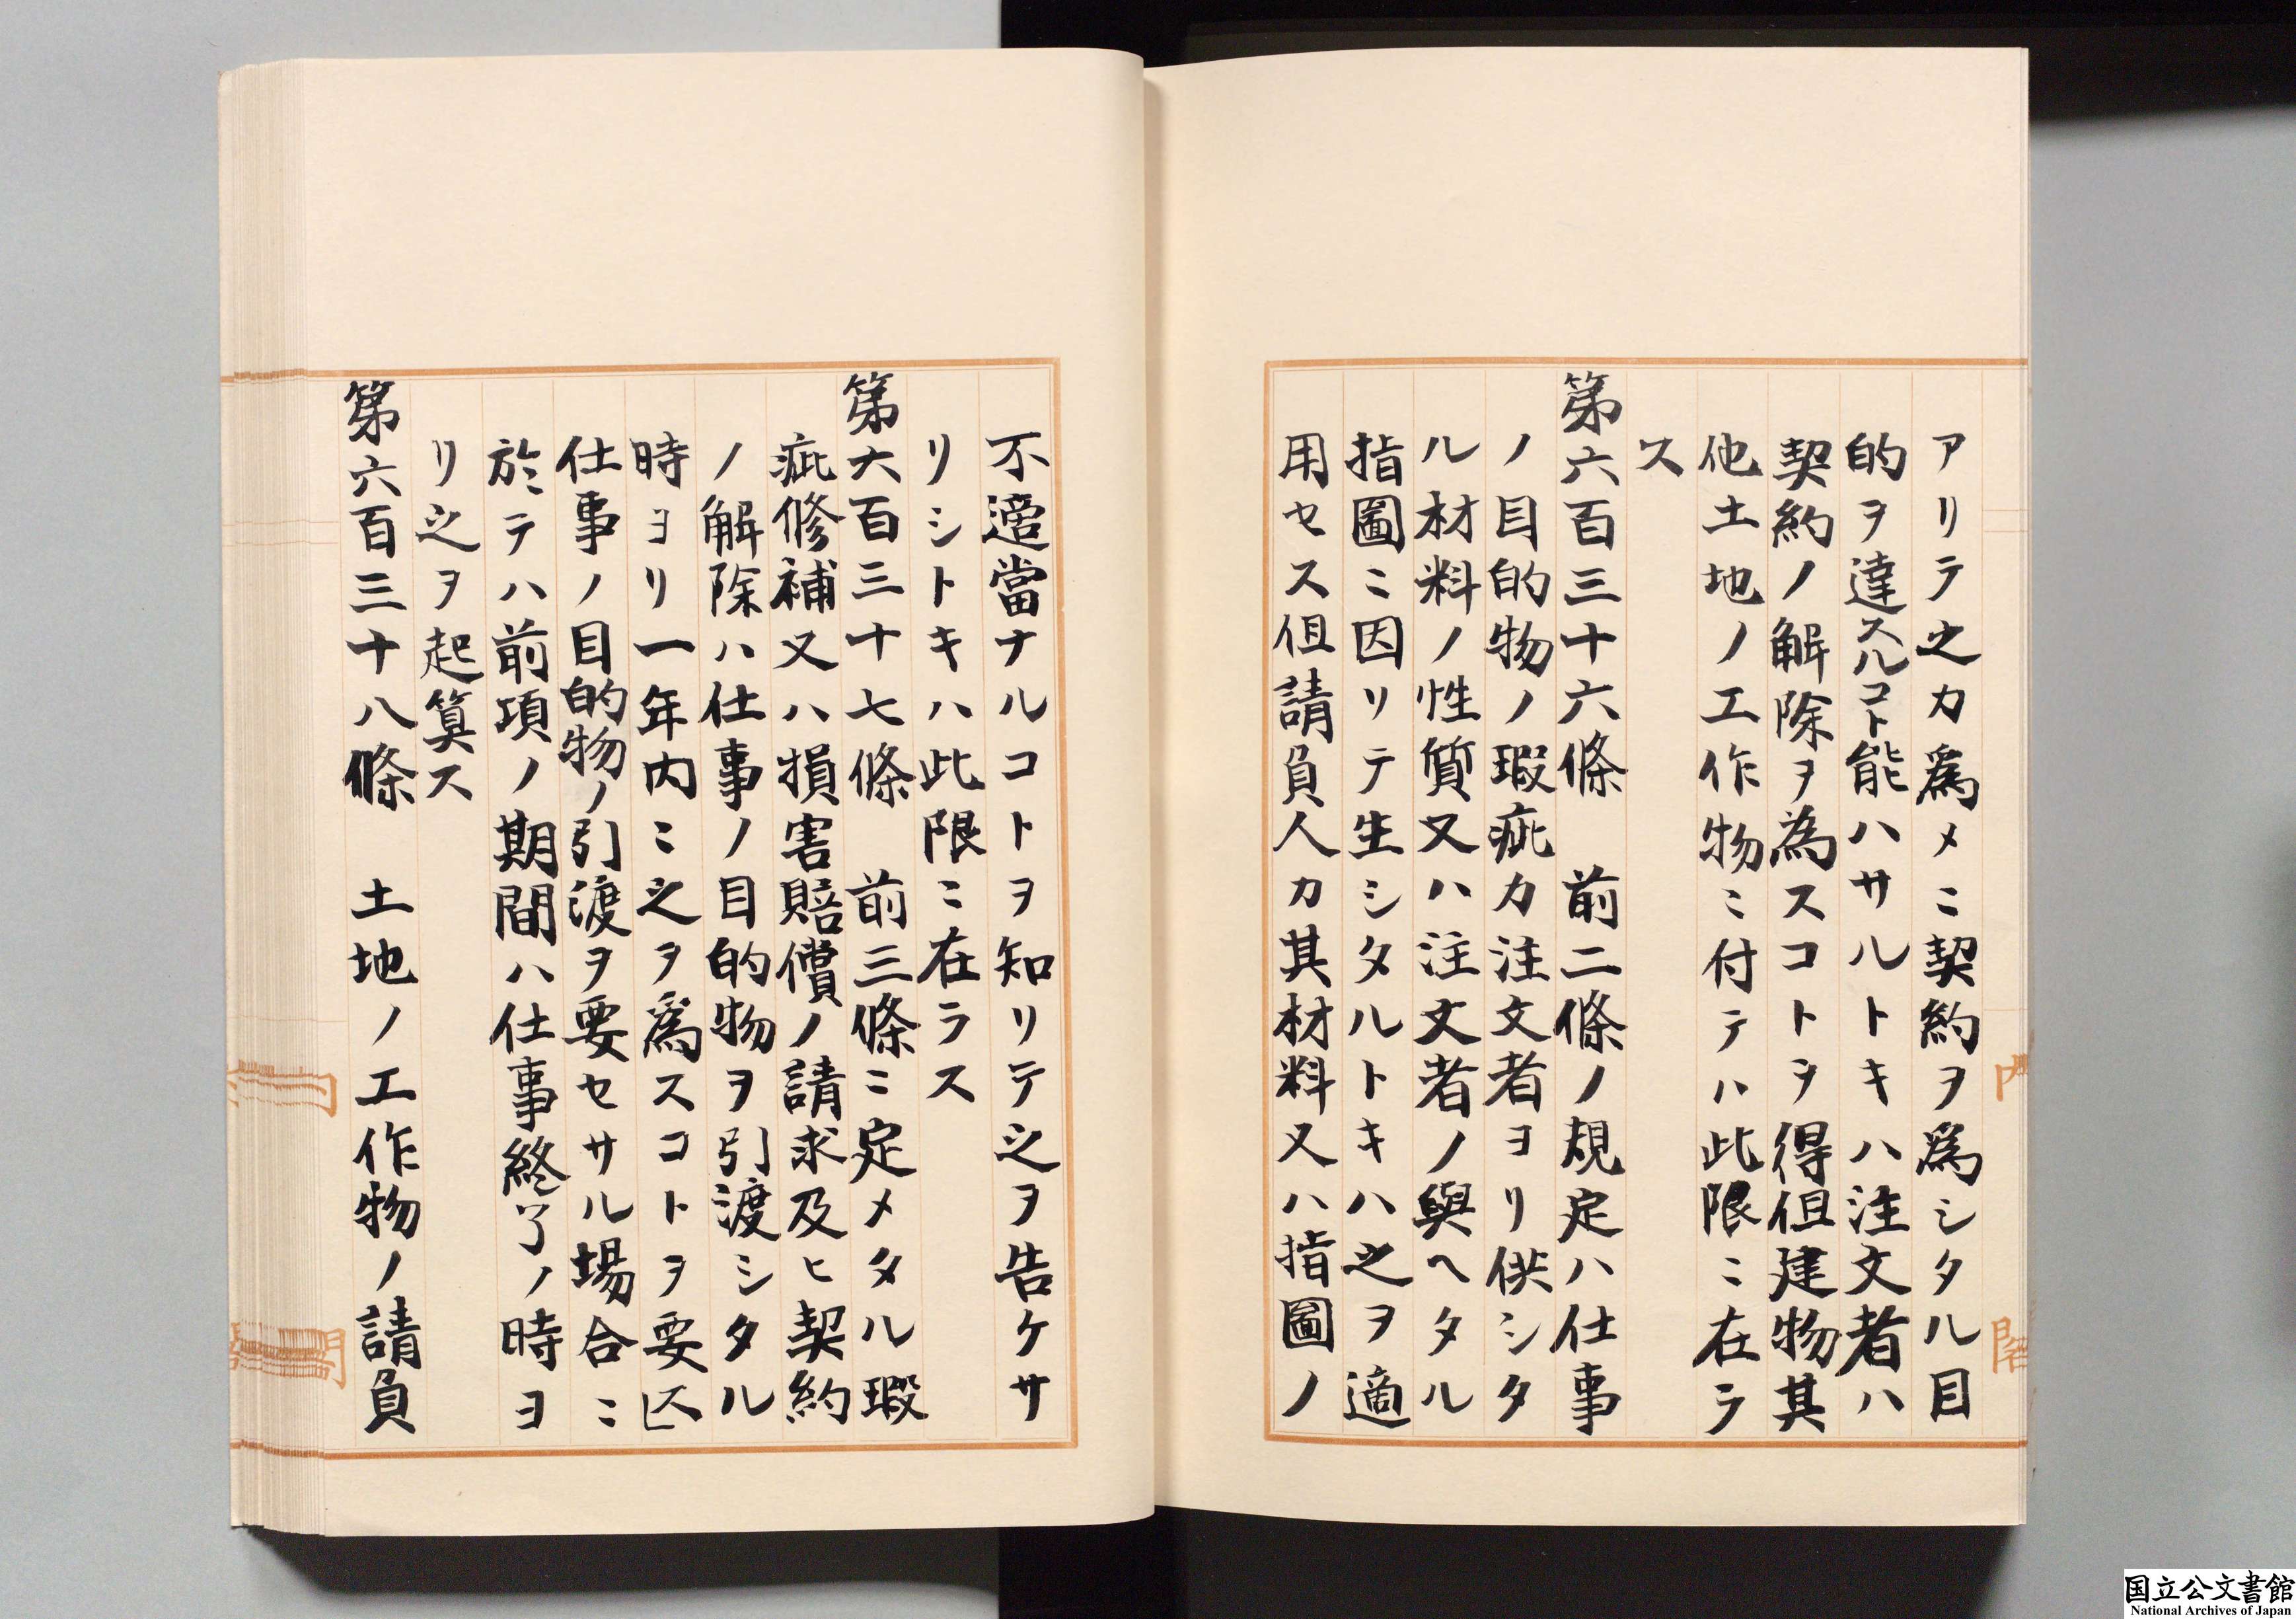 アリテ之カ爲メニ契約ヲ爲シタル目
的ヲ達スルコト能ハサルトキハ注文者ハ
契約ノ解除ヲ為スコトヲ得但建物其
他土地ノ工作物ニ付テハ此限ニ在ラ
ス
第六百三十六條　前二條ノ規定ハ仕事
ノ目的物ノ瑕疵カ注文者ヨリ供シタ
ル材料ノ性質又ハ注文者ノ與ヘタル
指圖ニ因リテ生シタルトキハ之ヲ適
用セス但請負人カ其材料又ハ指圖ノ
不適當ナルコトヲ知リテ之ヲ告ケサ
リシトキハ此限ニ在ラス
第六百三十七條　前三條ニ定メタル瑕
疵修補又ハ損害賠償ノ請求及ヒ契約
ノ解除ハ仕事ノ目的物ヲ引渡シタル
時ヨリ一年内ニ之ヲ爲スコトヲ要ス
仕事ノ目的物ノ引渡ヲ要セサル場合ニ
於テハ前項ノ期間ハ仕事終了ノ時ヨ
リ之ヲ起算ス
第六百三十八條　土地ノ工作物ノ請負
国立公文書館
National Archives of Japan